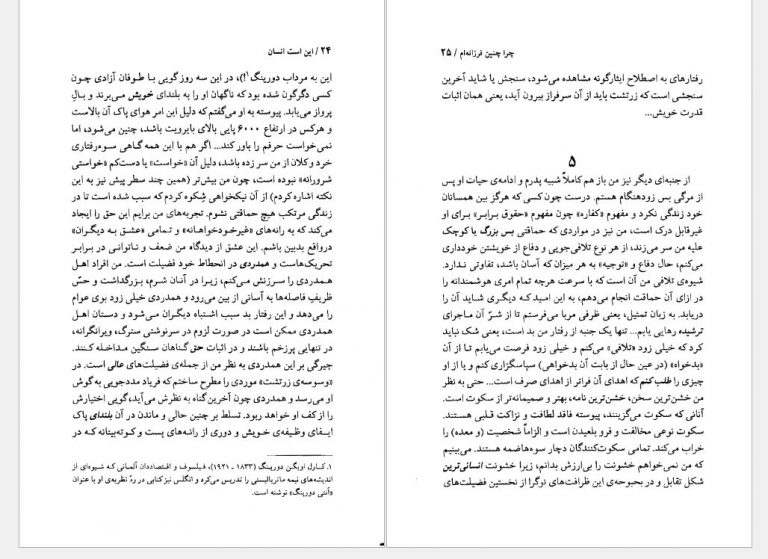 ۲۴ / این است انسان
این به مرداب دورینگ۱!)، در این سه روز گویی با طوفان آزادی چون
کسی دگرگون شده بود که ناگهان او را به بلندای خویش می‌برند و بالِ
پرواز می‌یابد. پیوسته به او می‌گفتم که دلیل این امر هوای پاک آن بالاست
و هرکس در ارتفاع ۶۰۰۰ پایی بالای بایرویت باشد، چنین می‌شود، اما
نمی‌خواست حرفم را باور کند... اگر هم با این همه گاهی سوءرفتاری
خرد و کلان از من سر زده باشد، دلیل آن «خواست» یا دست‌کم «خواستی
شرورانه» نبوده است، چون من بیش‌تر (همین چند سطر پیش نیز به این
نکته اشاره کردم) از آن نیکخواهی شِکوه کردم که سبب شده است تا در
زندگی مرتکب هیچ حماقتی نشوم. تجربه‌های من برایم این حق را ایجاد
می‌کند که به رانه‌های «غیرخودخواهانه» و تمامی «عشق به دیگران»
درواقع بدبین باشم. این عشق از دیدگاه من ضعف و ناتوانی در برابر
تحریک‌هاست و همدردی در انحطاط خود فضیلت است. من افراد اهل
همدردی را سرزنش می‌کنم، زیرا در آنان شرم، بزرگداشت و حسّ
ظریفِ فاصله‌ها به آسانی از بین می‌رود و همدردی خیلی زود بوی عوام
را می‌دهد و این رفتار بد سبب اشتباه دیگران می‌شود و دستان اهل
همدردی ممکن است در صورت لزوم در سرنوشتی سترگ، ویرانگرانه،
در تنهایی پرزخم باشند و در اثبات حق گناهان سنگین مداخله کنند.
چیرگی بر این همدردی به نظر من از جمله‌ی فضیلت‌های عالی است. در
«وسوسه‌ی زرتشت» موردی را مطرح ساختم که فریاد مددجویی به گوش
او می‌رسد و همدردی چون آخرین گناه به نظرش می‌آید، گویی اختیارش
را از کف او خواهد ربود. تسلط بر چنین حالی و ماندن در آن بلندای پاک
ایفای وظیفه‌ی خویش و دوری از رانه‌های پست و کوته‌بینانه که در
۱. کارل اویگن دورینگ (۱۸۳۳ - ۱۹۲۱)، فیلسوف و اقتصاددان آلمانی که شیوه‌ای از
اندیشه‌های نیمه ماتریالیستی را تدریس می‌کرد و انگلس نیز کتابی در ردّ نظریه‌ی او با عنوان
«آنتی دورینگ» نوشته است.
چرا چنین فرزانه‌ام / ۲۵
رفتارهای به اصطلاح ایثارگونه مشاهده می‌شود، سنجش یا شاید آخرین
سنجشی است که زرتشت باید از آن سرفراز بیرون آید، یعنی همان اثبات
قدرت خویش...
۵
از جنبه‌ای دیگر نیز من باز هم کاملاً شبیه پدرم و ادامه‌ی حیات او پس
از مرگی بس زودهنگام هستم. درست چون کسی که هرگز بین همسانان
خود زندگی نکرد و مفهوم «کفاره» چون مفهوم «حقوق برابر» برای او
غیرقابل درک است، من نیز در مواردی که حماقتی بس بزرگ یا کوچک
علیه من سر می‌زند، از هر نوع تلافی‌جویی و دفاع از خویشتن خودداری
می‌کنم، حال دفاع و «توجیه» به هر میزان که آسان باشد، تفاوتی ندارد.
شیوه‌ی تلافی من آن است که با سرعت هرچه تمام امری هوشمندانه را
در ازای آن حماقت انجام می‌دهم، به این امید که دیگری شاید آن را
دریابد. به زبان تمثیل، ظرفی مربا می‌فرستم تا از شرّ آن ماجرای
ترشیده رهایی یابم... تنها یک جنبه از رفتار من بد است، یعنی شک نباید
کرد که خیلی زود «تلافی» می‌کنم و خیلی زود فرصت می‌یابم تا از آن
«بدخواه» (در عین حال از بابت آن بدخواهی) سپاسگزاری کنم و یا از او
چیزی را طلب کنم که اهدای آن فراتر از اهدای صرف است... حتی به نظر
من خشن‌ترین سخن، خشن‌ترین نامه، بهتر و صمیمانه‌تر از سکوت است.
آنانی که سکوت می‌گزینند، پیوسته فاقد لطافت و نزاکت قلبی هستند.
سکوت نوعی مخالفت و فرو بلعیدن است و الزاماً شخصیت (و معده) را
خراب می‌کند. تمامی سکوت‌کنندگان دچار سوءهاضمه هستند. می‌بینیم
که من نمی‌خواهم خشونت را بی‌ارزش بدانم، زیرا خشونت انسانی‌ترین
شکل تقابل و در بحبوحه‌ی این ظرافت‌های نوگرا از نخستین فضیلت‌های